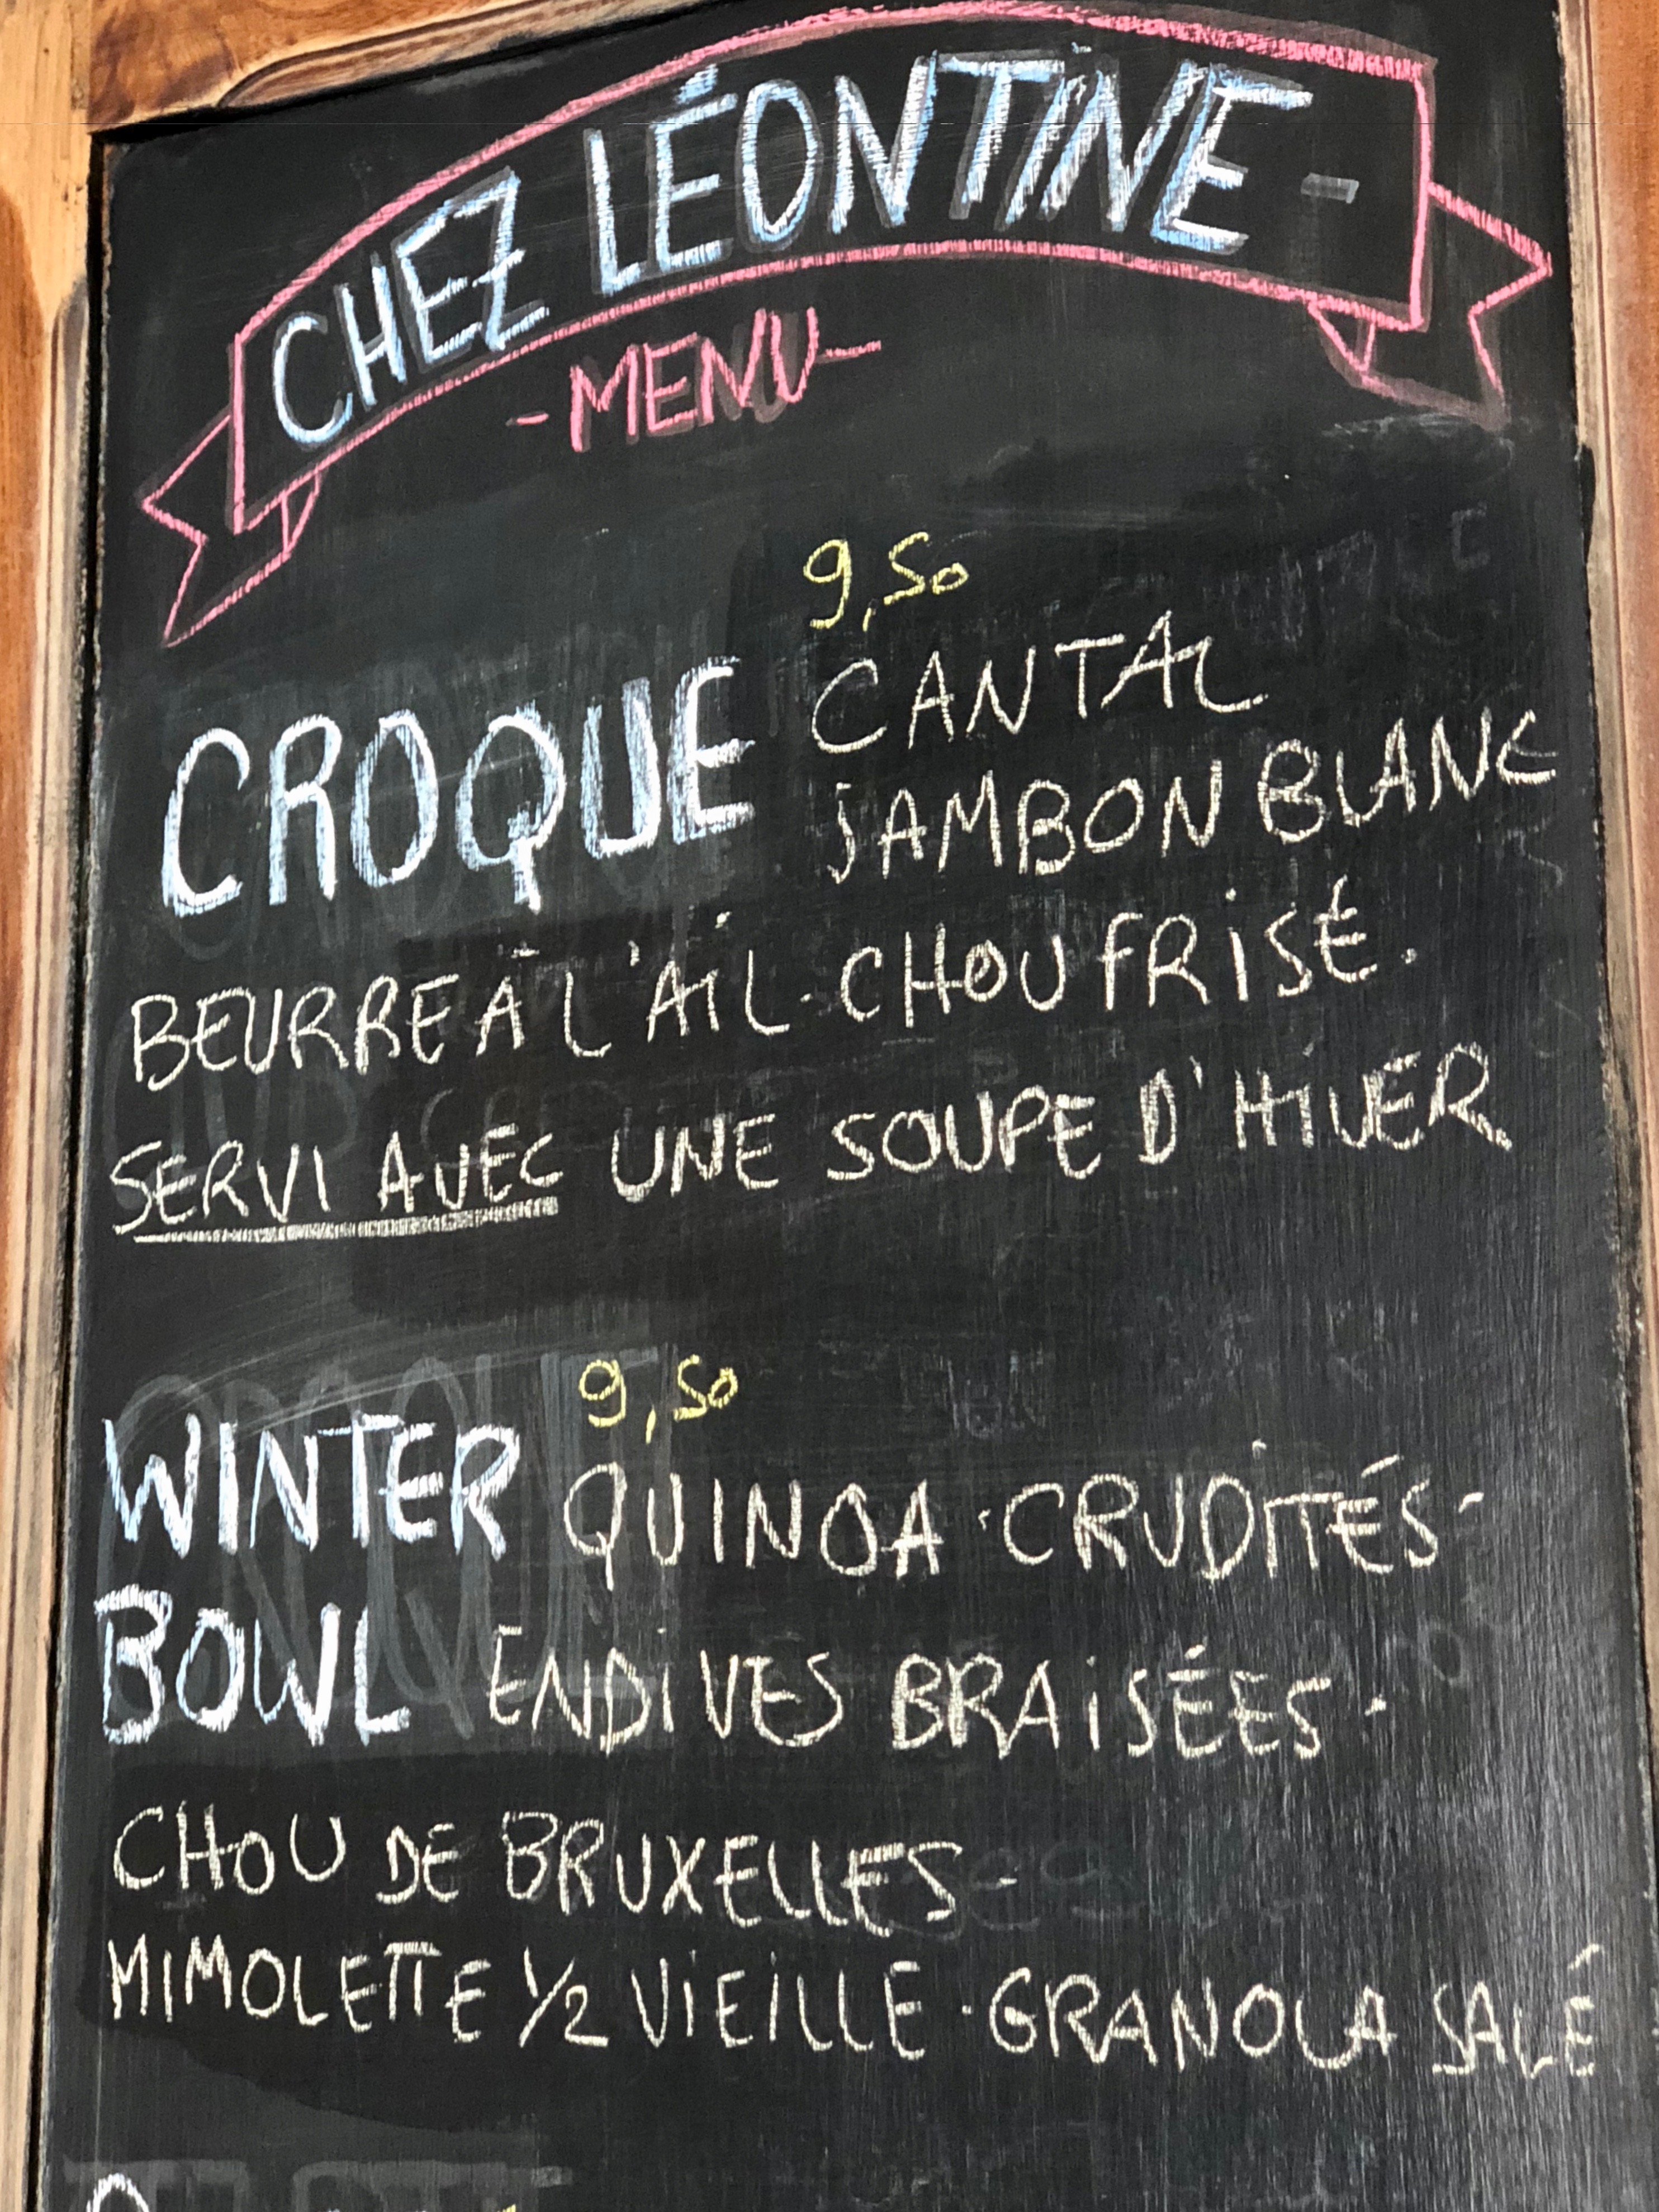 CHEZ LÉONTINE -
- MENU -
9,50
CROQUE CANTAL
JAMBON BLANC
BEURRE À L'AIL - CHOU FRISÉ.
SERVI AVEC UNE SOUPE D'HIVER
9,50
WINTER QUINOA · CRUDITÉS -
BOWL ENDIVES BRAISÉES ·
CHOU DE BRUXELLES -
MIMOLETTE 1/2 VIEILLE · GRANOLA SALÉ